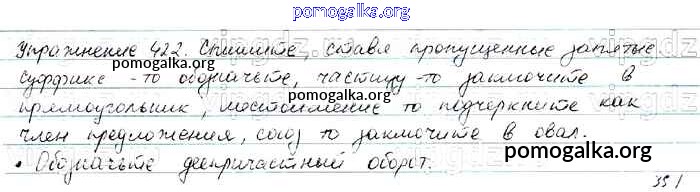 pomogalka.org
Упражнение 422. Спишите, ставя пропущенные запятые
суффикс -то обозначьте, частицу -то заключите в
pomogalka.org
pomogalka.org
прямоугольник, местоимение то подчеркните как
член предложения, союз то заключите в овал.
• Обозначьте деепричастный оборот.
pomogalka.org
351